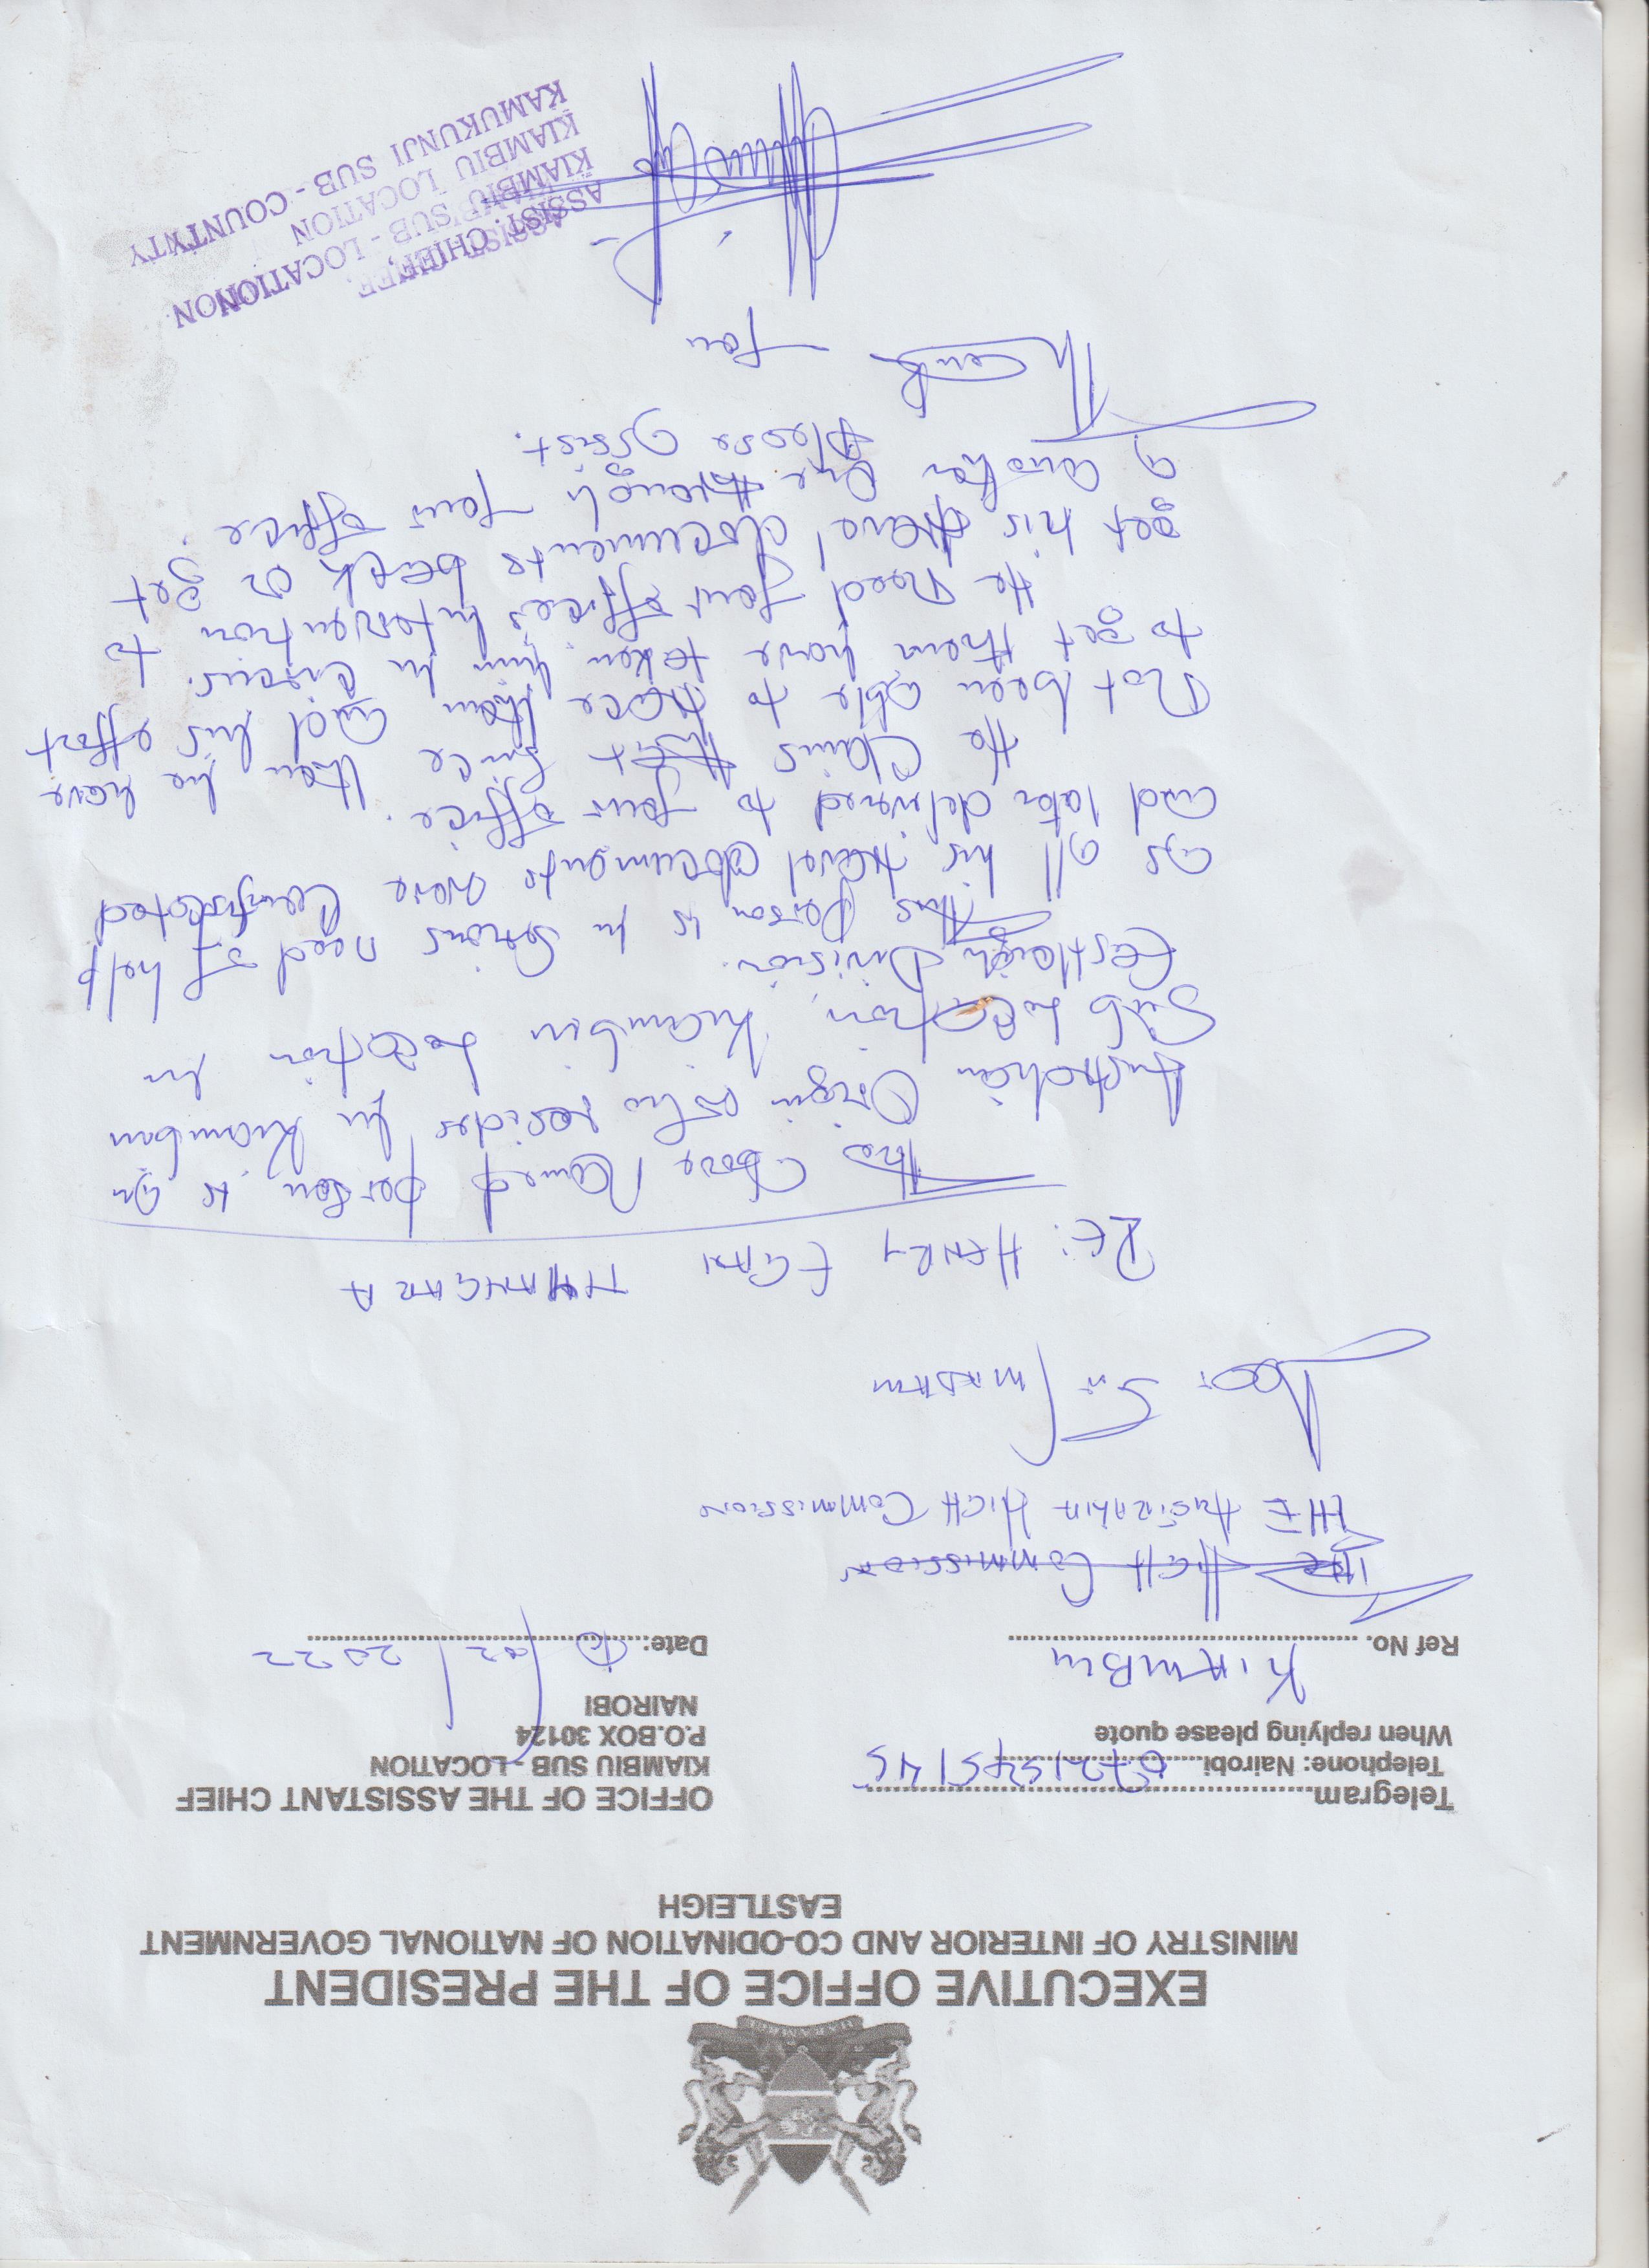 HARAMBEE
EXECUTIVE OFFICE OF THE PRESIDENT
MINISTRY OF INTERIOR AND CO-ODINATION OF NATIONAL GOVERNMENT
EASTLEIGH
Telegram..........
Telephone: Nairobi..........
When replying please quote
Ref No. .......... KIAMBIU
OFFICE OF THE ASSISTANT CHIEF
KIAMBIU SUB - LOCATION
P.O.BOX 30124
NAIROBI
Date:.......... 10/02/2022
THE HIGH COMMISSION
THE AUSTRALIA HIGH COMMISSION
Dear Sir/MADAM
RE: HENRY EGAN
The above Named person is an
Australian Origin who resides in Kiambiu
Sub Location, Kiambiu Location in
Eastleigh Division.
This person is in Serious need of help
as all his travel documents were Confiscated
and later delivered to your office.
He Claims that Since then he have
Not been able to trace them and his effort
to get them have taken him in Circus.
He Need your office's Intervention to
get his travel documents back or get
a another One through your office.
Please assist.
Thank you
ASSIST. CHIEF,
KIAMBIU SUB - LOCATION
KIAMBIU LOCATION
KAMUKUNJI SUB - COUNTY